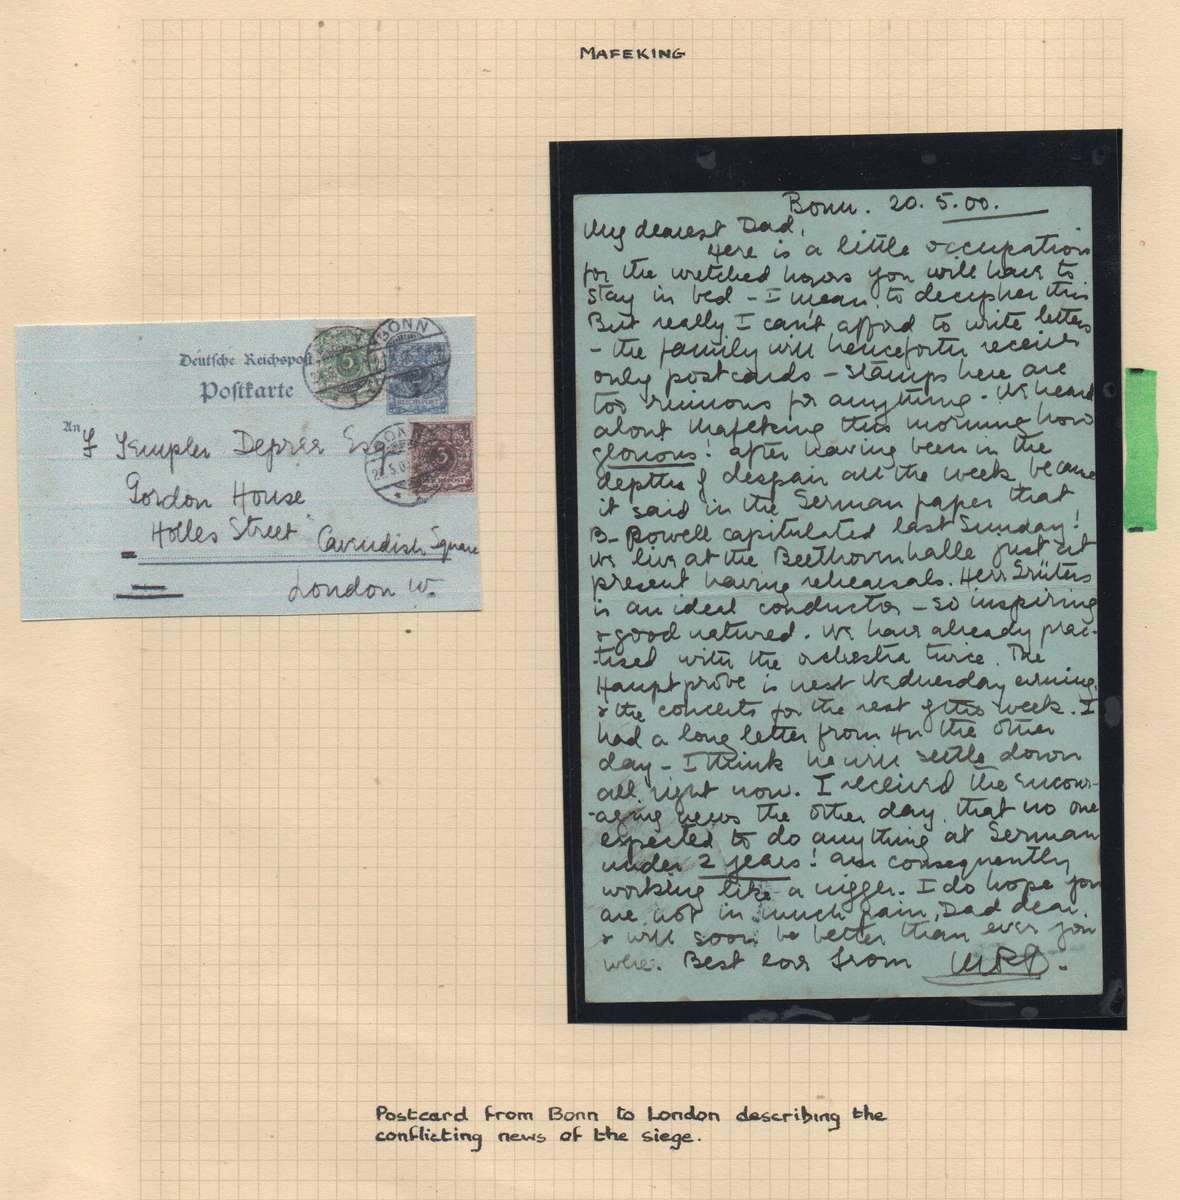 MAFEKING
Deutsche Reichspost
Postkarte
An
BONN
5
REICHSPOST
F Templer Depree Esq
BONN
5
REICHSPOST
Gordon House
Holles Street Cavendish Square
London W.
Bonn. 20.5.00.
My dearest Dad,
Here is a little occupation
for the wretched hours you will have to
stay in bed – I mean, to decipher this
But really I can't afford to write letters
– the family will henceforth receive
only postcards – stamps here are
too ruinous for anything. We heard
about Mafeking this morning how
glorious! after having been in the
depths of despair all the week because
it said in the German paper that
B-Powell capitulated last Sunday!
We live at the Beethovenhalle just at
present having rehearsals. Herr Grüters
is an ideal conductor – so inspiring
& good natured. We have already prac-
tised with the orchestra twice. The
Hauptprobe is next Wednesday evening
& the concerts for the rest of the week. I
had a long letter from the other
day – I think he will settle down
all right now. I received the encour-
-aging news the other day that no one
expected to do anything at German
under 2 years! am consequently
working like a nigger. I do hope you
are not in much pain, Dad dear,
& will soon be better than ever you
were. Best love from
Postcard from Bonn to London describing the
conflicting news of the siege.